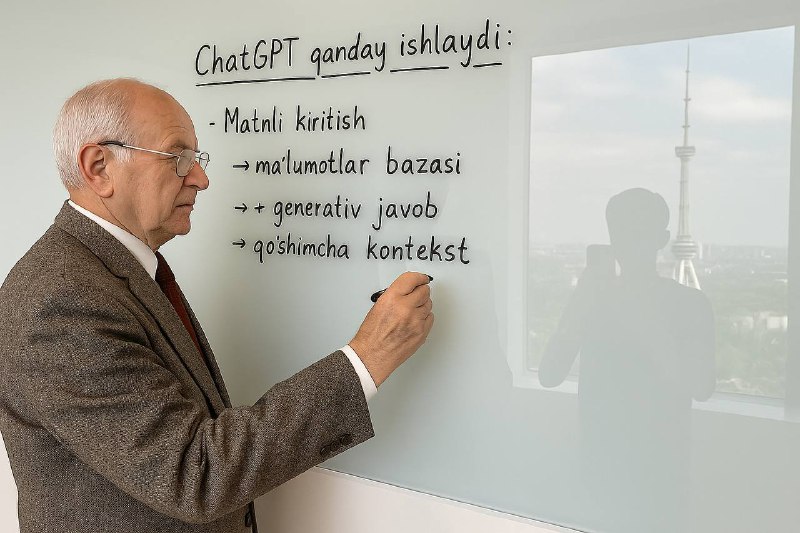 ChatGPT qanday ishlaydi:
- Matnli kiritish
→ ma'lumotlar bazasi
→ + generativ javob
→ qo'shimcha kontekst